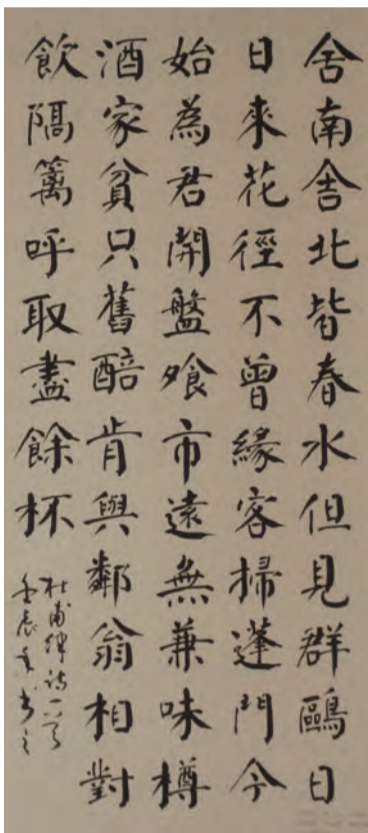 舍南舍北皆春水但見群鷗日
日來花徑不曾緣客掃蓬門今
始為君開盤飧市遠無兼味樽
酒家貧只舊醅肯與鄰翁相對
飲隔籬呼取盡餘杯
杜甫律诗一首
壬辰年书之